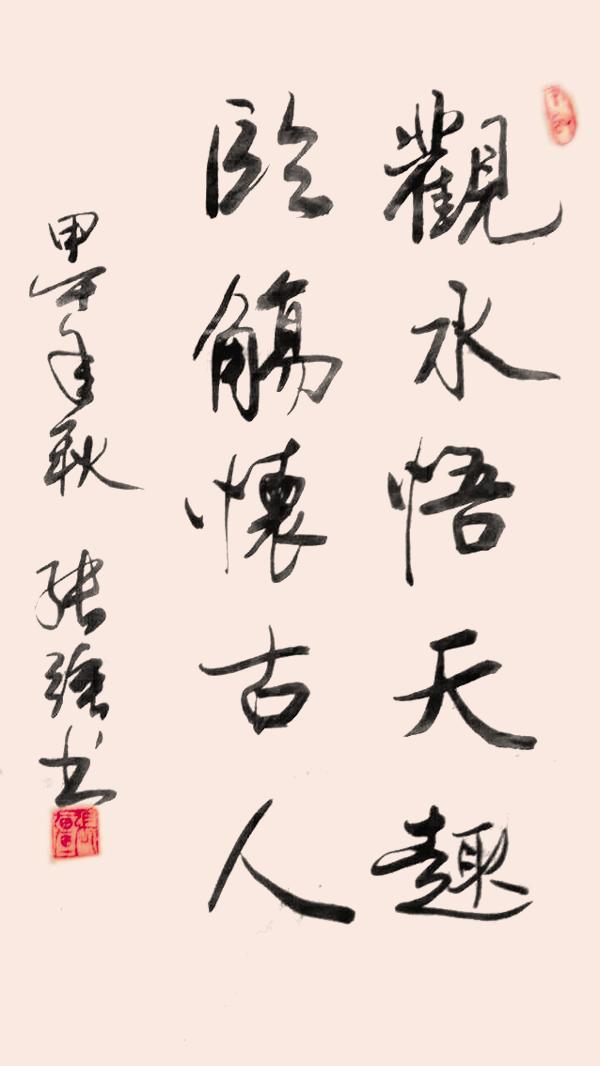 觀水悟天趣
臨觴懷古人
甲午年秋 張書